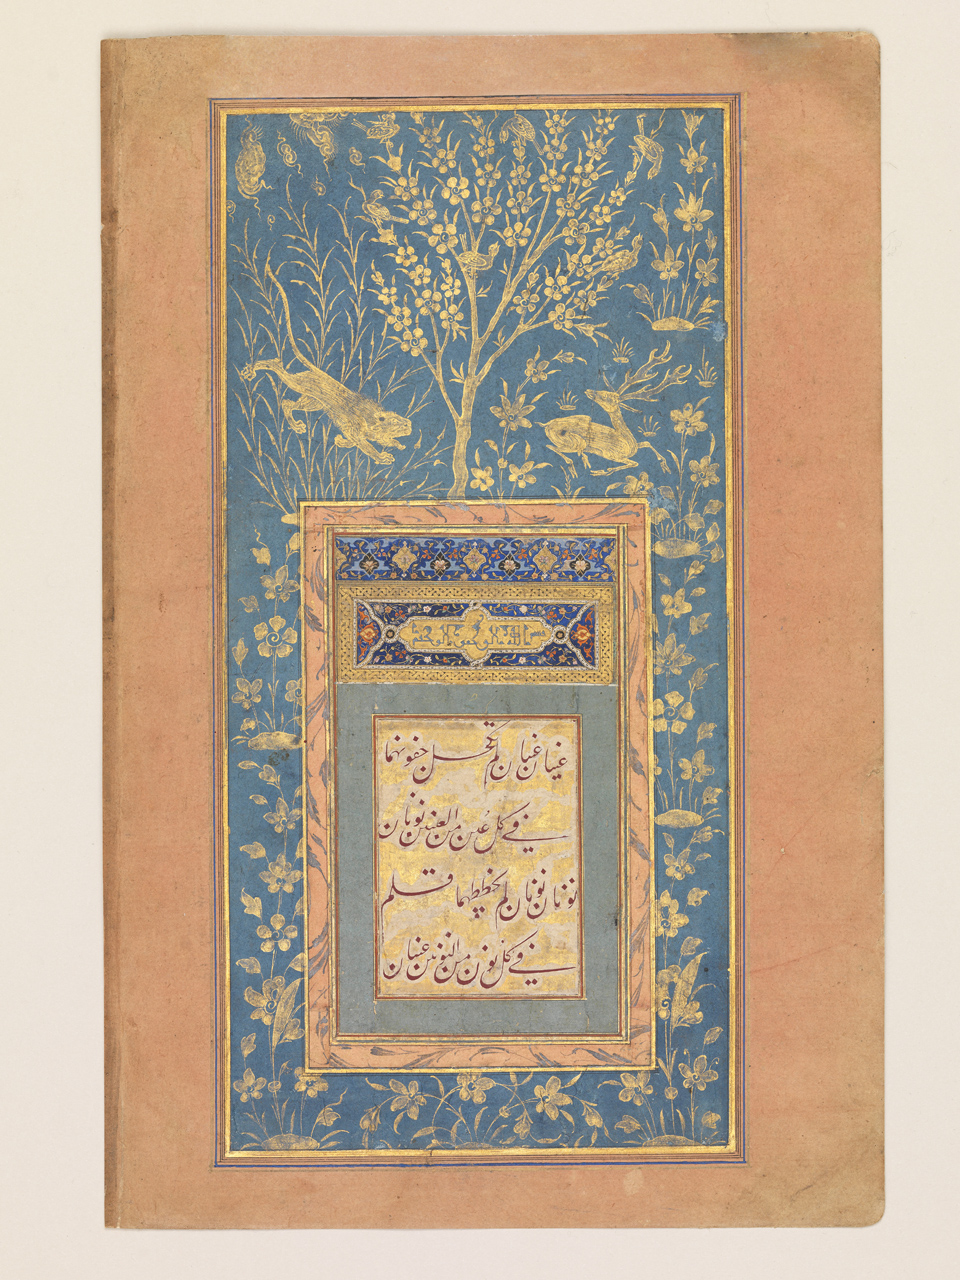 عينان عينان لم تكحل جفونهما
في كل عين من العينين نونان
نونان نونان لم يخططهما قلم
في كل نون من النونين عينان